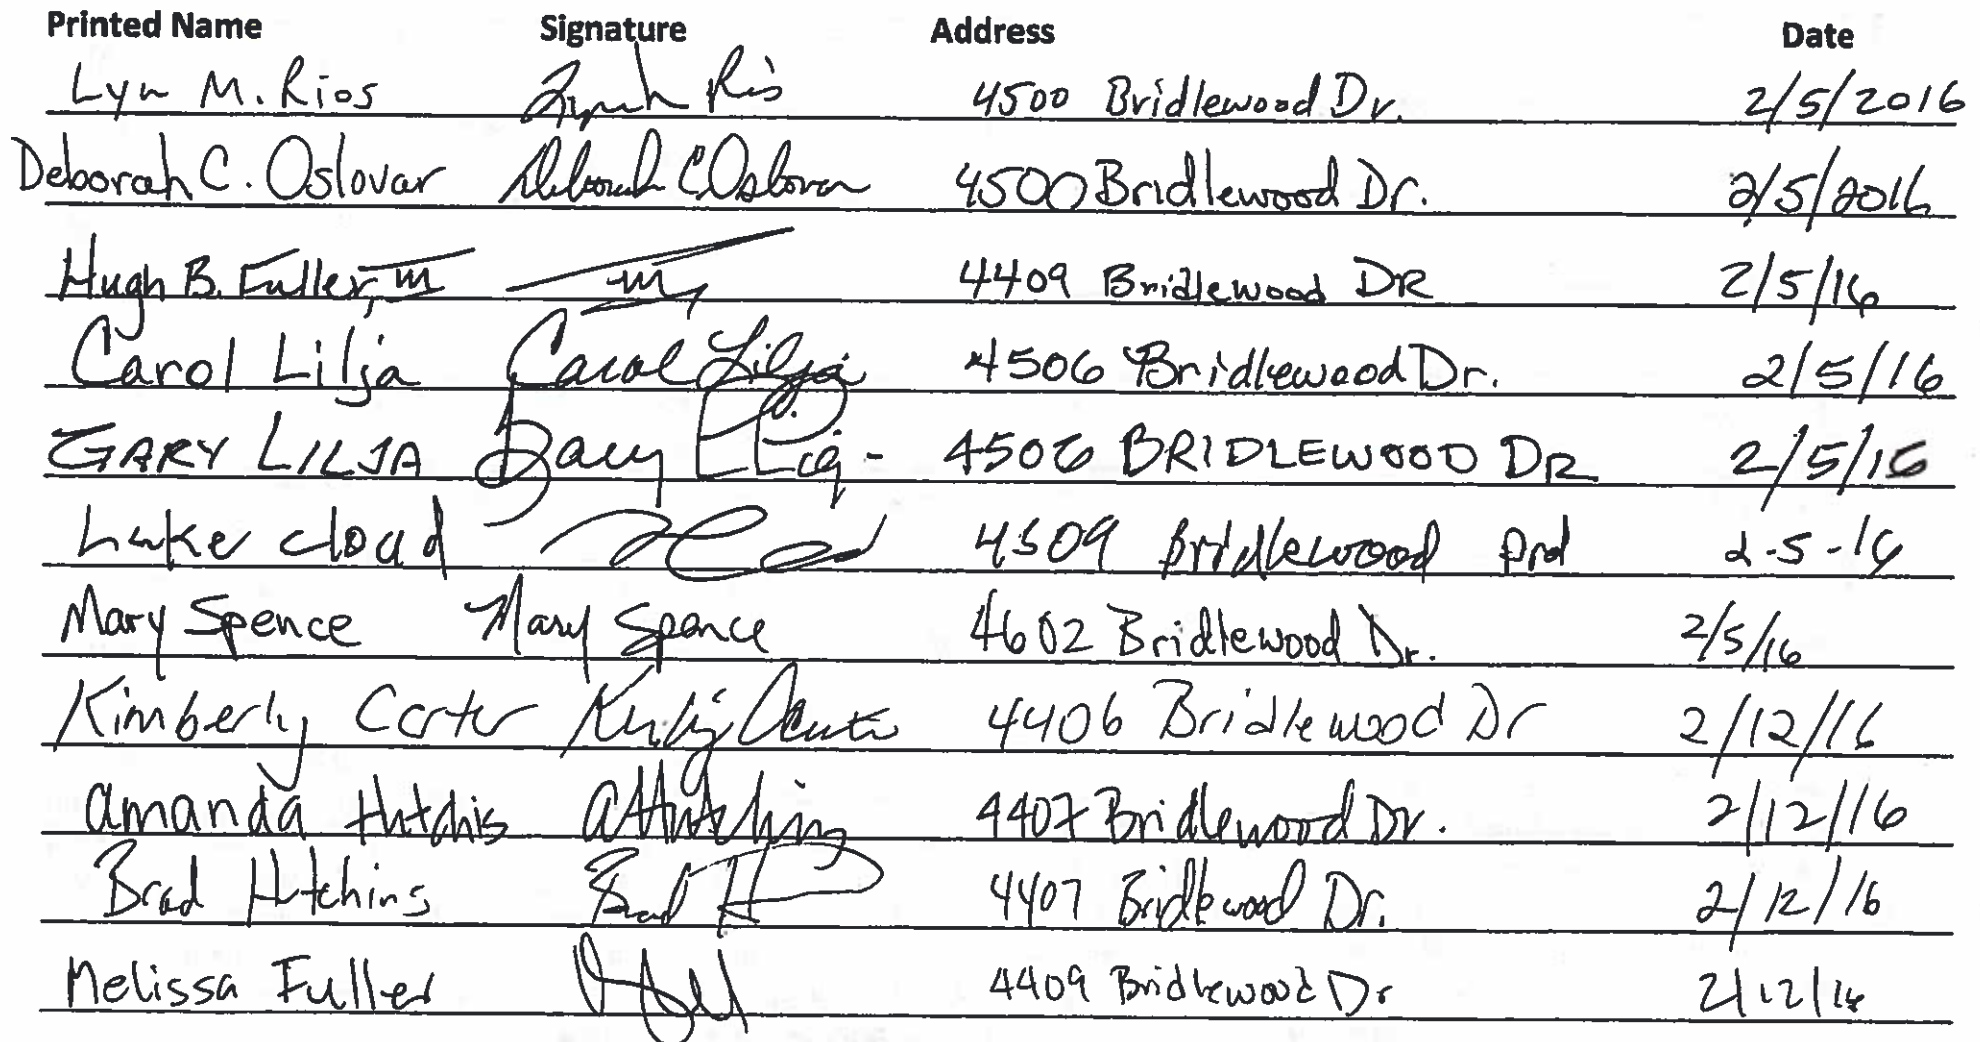 Printed Name Signature Address Date
Lyn M. Rios 4500 Bridlewood Dr. 2/5/2016
Deborah C. Oslovar Deborah C Oslovar 4500 Bridlewood Dr. 2/5/2016
Hugh B. Fuller, III 4409 Bridlewood DR 2/5/16
Carol Lilja Carol Lilja 4506 Bridlewood Dr. 2/5/16
GARY LILJA Gary 4506 BRIDLEWOOD DR 2/5/16
Luke cloud 4509 Bridlewood 2-5-16
Mary Spence Mary Spence 4602 Bridlewood Dr. 2/5/16
Kimberly Carter 4406 Bridlewood Dr 2/12/16
Amanda AHutchins 4407 Bridlewood Dr. 2/12/16
Brad Hutchins Brad H 4407 Bridlewood Dr. 2/12/16
Melissa Fuller 4409 Bridlewood Dr 2/12/16